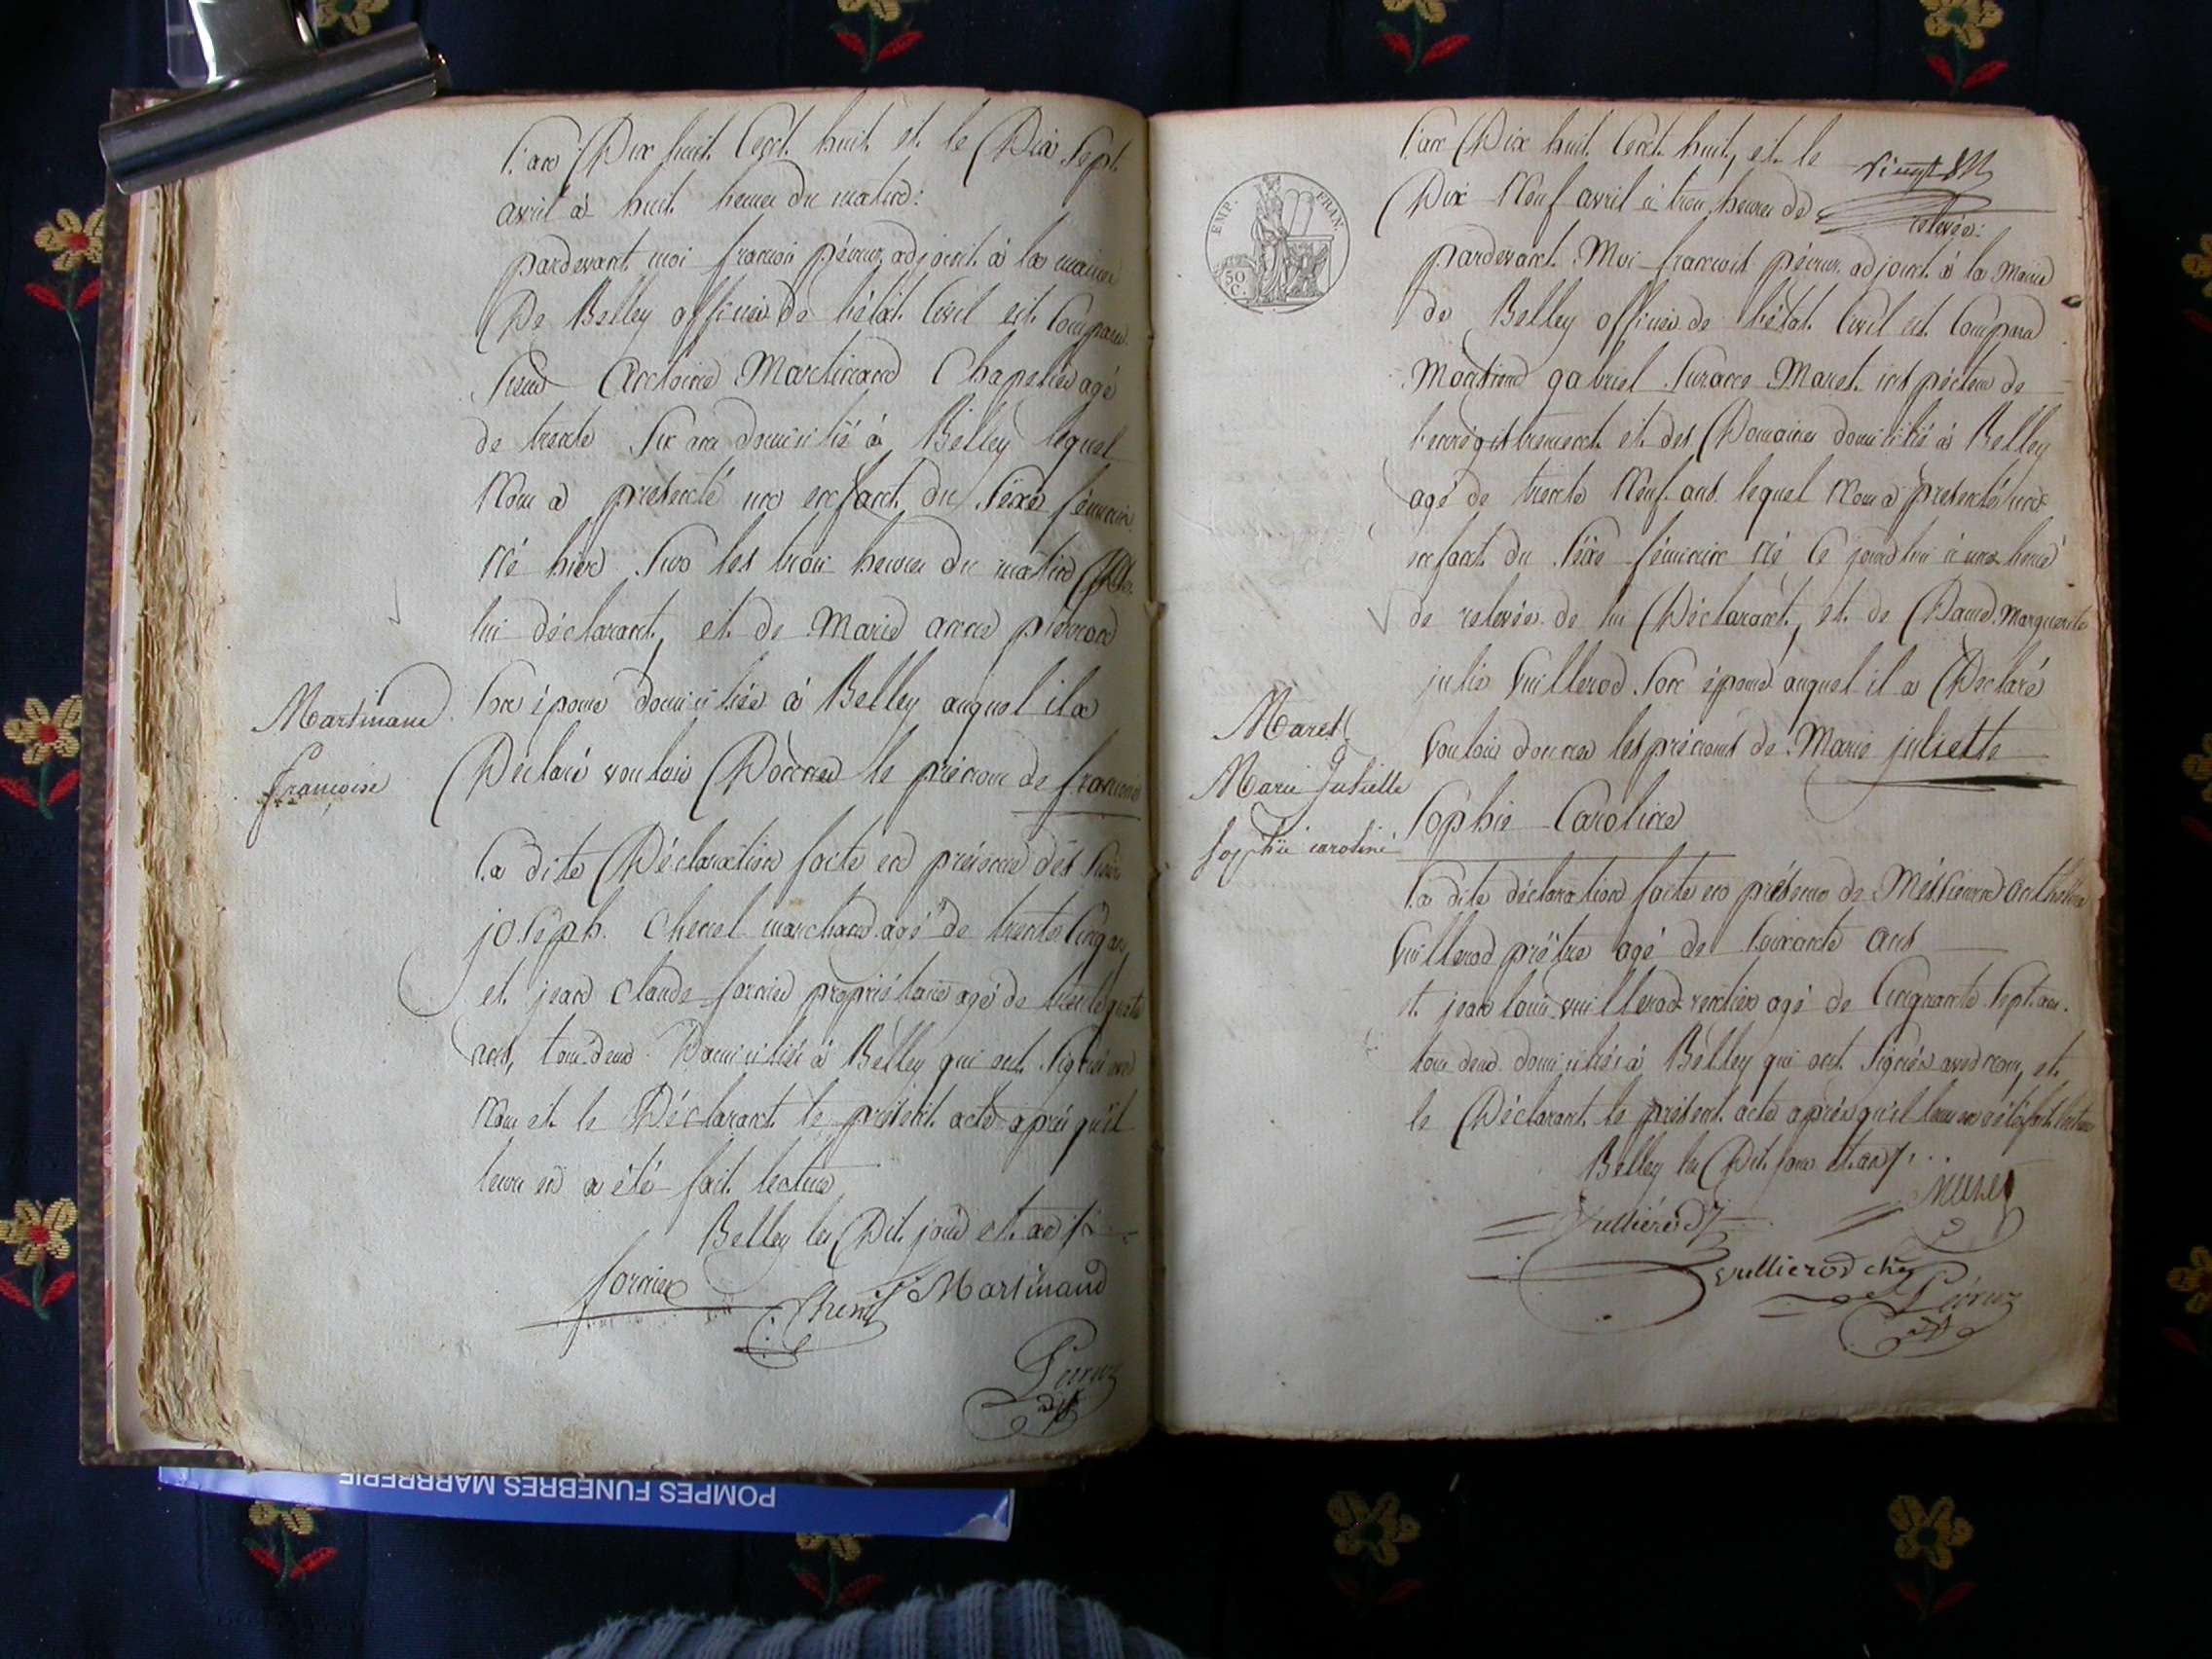 L'an Dix huit Cent huit et le Dix Sept
avril à huit heures du matin:
pardevant moi françois péruz adjoint à la mairie
De Belley officier de l'état Civil est Comparu
Sieur Antoine Martinand Chapelier agé
de trente Six ans domicilié à Belley lequel
Nous a presenté un enfant du Séxe féminin
Né hier Sur les trois heures du matin De
lui déclarant, et de Marie anne
Son épouse domiciliée à Belley auquel il a
Martinand
françoise
Déclaré vouloir Donner le prénom de françoise
La dite Déclaration faite en présence des Sieurs
joseph Chenel marchand agé de trente Cinq ans
et jean Claude fornier propriétaire agé de trente quatre
ans, tous deux Domiciliés à Belley qui ont Signés avec
Nous et le Déclarant le présent acte après qu'il
leur en a été fait lecture
Belley les Dit jour et an
fornier Chenel Martinand
Péruz
adjt
L'an Dix huit Cent huit, et le vingt
Dix Neuf avril à trois heures de relevée:
EMP. FRAN.
50 C.
pardevant Moi françois péruz adjoint à la Mairie
de Belley officier de l'état Civil est Comparu
Monsieur gabriel Maret inspécteur de
l'enrégistrement et des Domaines domicilié à Belley
agé de trente Neuf ans lequel Nous a presenté un
enfant du Séxe féminin né Ce jourd'hui à une heure
de relevée de lui Déclarant, et de Dame Marguerite
julie Vuillerod Son épouse auquel il a Déclaré
Maret
Marie Juliette
Sophie caroline
Vouloir donner les prénoms de Marie juliette
Sophie Caroline
La dite déclaration faite en présence de Messieurs Anthelme
Vuillerod prêtre agé de Soixante ans
et jean louis vuillerod rentier agé de Cinquante Sept ans
tous deux domiciliés à Belley qui ont Signés avec nous, et
le Déclarant le présent acte après qu'il leur en a été fait lecture
Belley les Dit jour et an
Maret
Vullierod
vullierod
Péruz
adjt
POMPES FUNEBRES MARBRERIE